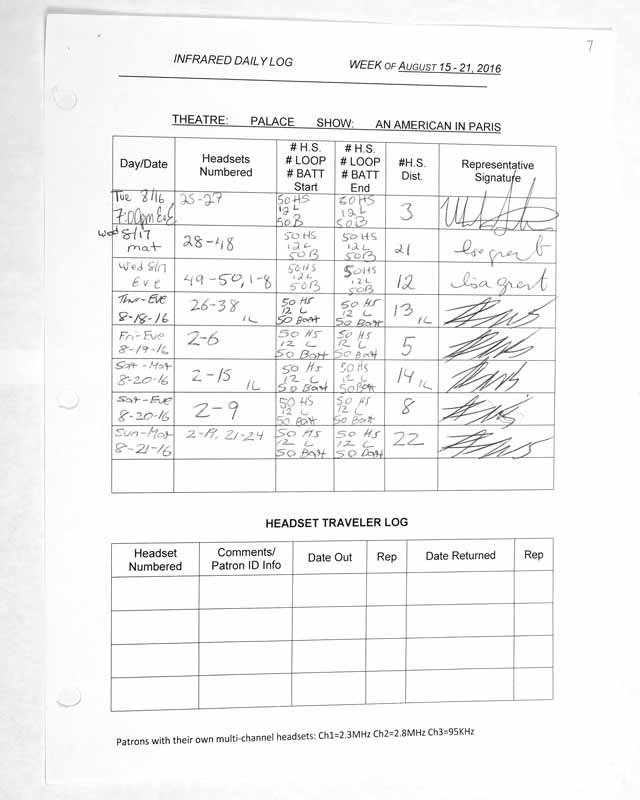 7
INFRARED DAILY LOG WEEK OF AUGUST 15 - 21, 2016
THEATRE: PALACE SHOW: AN AMERICAN IN PARIS
Day/Date
Headsets Numbered
# H.S. # LOOP # BATT Start
# H.S. # LOOP # BATT End
#H.S. Dist.
Representative Signature
Tue 8/16 7:00pm Eve 25-27 50HS 12 L 50B 50HS 12 L 50B 3
Wed 8/17 mat 28-48 50HS 12 L 50B 50HS 12 L 50B 21 lisa grant
Wed 8/17 Eve 49-50, 1-8 50HS 12 L 50B 50HS 12 L 50B 12 lisa grant
Thur-Eve 8-18-16 26-38 1L 50 HS 12 L 50 Batt 50 HS 12 L 50 Batt 13 1L
Fri-Eve 8-19-16 2-6 50 HS 12 L 50 Batt 50 HS 12 L 50 Batt 5
Sat-Mat 8-20-16 2-15 1L 50 HS 12 L 50 Batt 50 HS 12 L 50 Batt 14 1L
Sat-Eve 8-20-16 2-9 50 HS 12 L 50 Batt 50 HS 12 L 50 Batt 8
Sun-Mat 8-21-16 2-19, 21-24 50 HS 12 L 50 Batt 50 HS 12 L 50 Batt 22
HEADSET TRAVELER LOG
Headset Numbered
Comments/ Patron ID Info
Date Out
Rep
Date Returned
Rep
Patrons with their own multi-channel headsets: Ch1=2.3MHz Ch2=2.8MHz Ch3=95KHz